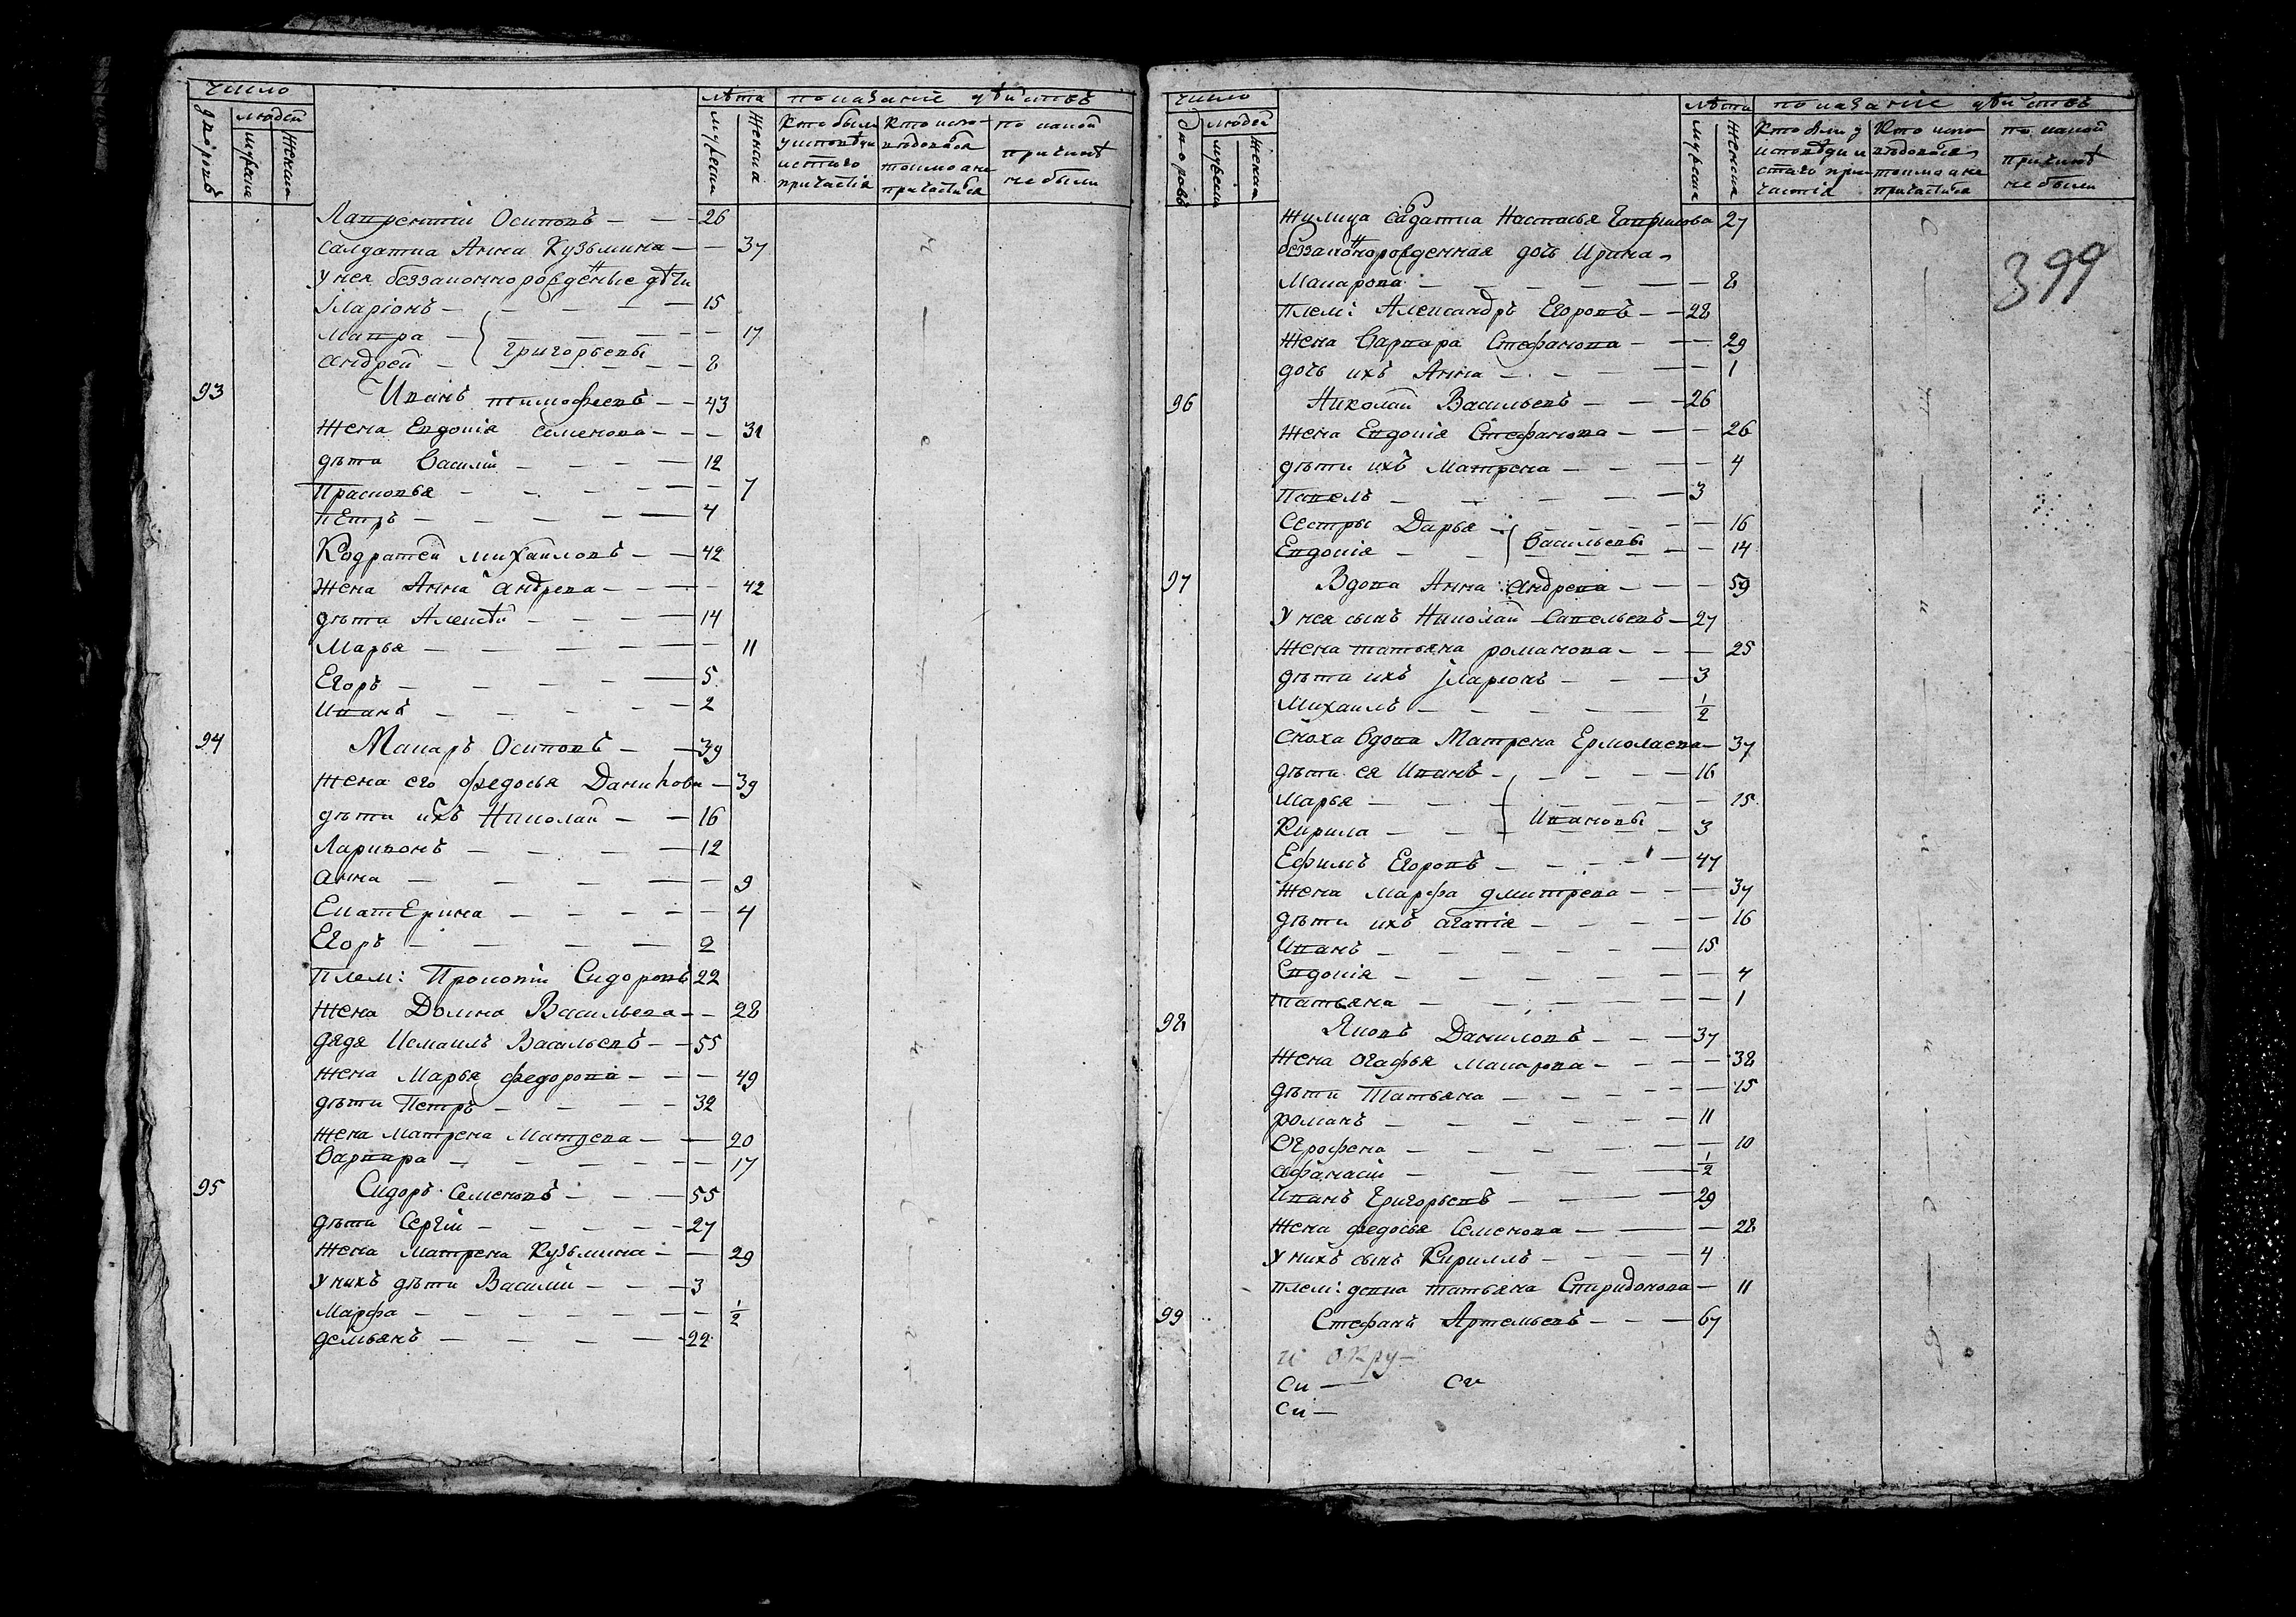 число
лѣта показаніе дѣйствъ
дворовъ
людей
мужеска
женска
мужеска
женска
Кто были у исповѣди и стаго причастія
Кто исповѣдовался токмо а не причастился
по какой причинѣ не были
Лаврентій Осиповъ — — — 26
салдатка Анна Кузьмина — — 37
у нея беззаконнорожденные дѣти
Іларіонъ — — — — 15
Мавра — — — — 17
Григорьевы
андрей — — — — 8
93 Иванъ тимофеевъ — — 43
жена Евдокія семенова — — — 31
дѣти Василій — — — — 12
Прасковья — — — — — 7
Петръ — — — — 4
Кодратей михаиловъ — — 42
жена Анна андрева — — — — 42
дѣти Алексѣй — — — — 14
Марья — — — — — 11
Егоръ — — — — 5
Иванъ — — — — — 2
94 Макаръ Осиповъ — — 39
жена его федосья Данилова — 39
дѣти ихъ Николай — — 16
Ларивонъ — — — — 12
анна — — — — — 9
Екатерина — — — — — 4
Егоръ — — — — 2
плем: Прокопій Сидоровъ 22
жена Домна Васильева — — 28
дядя Исмаилъ Васильевъ — — 55
жена Марья федорова — — — 49
дѣти Петръ — — — — 32
жена матрена Матвева — — 20
Варвара — — — — — — 17
95 Сидоръ Семеновъ — — — 55
дѣти Сергій — — — — — 27
жена матрена Кузьмина — — 29
у нихъ дѣти Василій — — — 3
марфа — — — — — — 1/2
демьянъ — — — — — 22
число
лѣта показаніе дѣйствъ
дворовъ
людей
мужеска
женска
мужеска
женска
Кто были у исповѣди и стаго причастія
Кто исповѣдовался токмо а не причастился
по какой причинѣ не были
399
жилица садатка Настасья Гаврилова 27
беззаконорожденная дочь Ирина
Макарова — — — — — — 8
плем: Александръ Егоровъ — — 28
жена Варвара Стефанова — — — 29
дочь ихъ Анна — — — — — 1
96 Николай Васильевъ — — — 26
жена Евдокія Стефанова — — — 26
дѣти ихъ матрена — — — — 4
Павелъ — — — — — 3
сестры Дарья — — — — — 16
Васильевы
Евдокія — — — — — 14
97 Вдова Анна андрева — — — 59
у нея сынъ Николай Савельевъ — 27
жена татьяна романова — — — 25
дѣти ихъ Іларіонъ — — — 3
михаилъ — — — — — 1/2
сноха вдова Матрена Ермолаева — 37
дѣти ея Иванъ — — — — — 16
марья — — — — — — 15
Ивановы
Кирила — — — — — 3
Ефимъ Егоровъ — — — — — 47
жена марфа дмитрева — — — 37
дѣти ихъ агапія — — — — — 16
Иванъ — — — — — — 15
Евдокія — — — — — — 4
татьяна — — — — — — 1
98 Яковъ Даниловъ — — — 37
жена огафья макарова — — — — 38
дѣти Татьяна — — — — — — 15
романъ — — — — — — 11
огрофена — — — — — 10
афанасій — — — — 1/2
Иванъ Григорьевъ — — — — 29
жена федосья Семенова — — — 28
у нихъ сынъ Кириллъ — — — — 4
плем: девка татьяна Спиридонова — 11
99 Стефанъ Артемьевъ — — — 67
си — си
си —